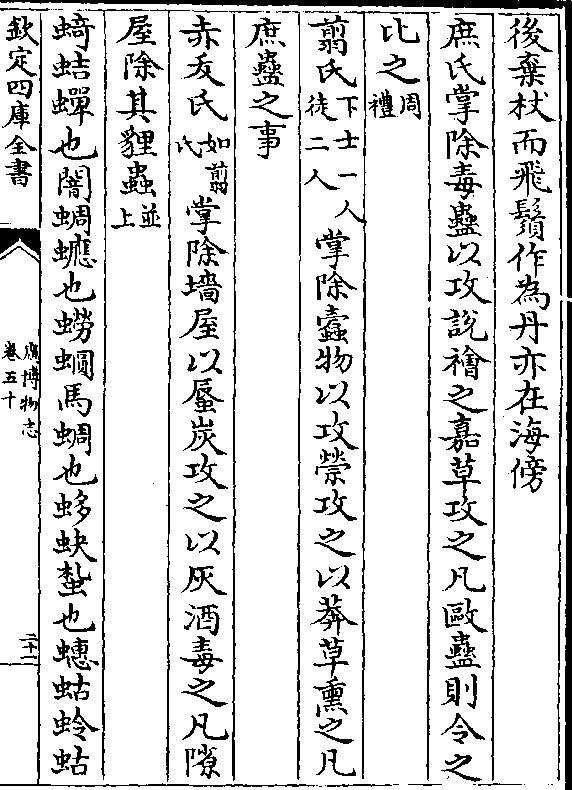 後棄杖而飛鬚作為丹亦在海傍
庶氏掌除毒蠱以攻說禬之嘉草攻之凡敺蠱則令之
比之周禮
翦氏下士一人徒二人掌除蠹物以攻禜攻之以莽草熏之凡
庶蠱之事
赤犮氏如翦氏掌除墻屋以蜃炭攻之以灰酒毒之凡隙
屋除其貍蟲並上
蜻蛣蟬也闇蜩螰也蟧蟈馬蜩也蛥蚗蟄也蟪蛄蛉蛄
欽定四庫全書
廣博物志
卷五十
二十二